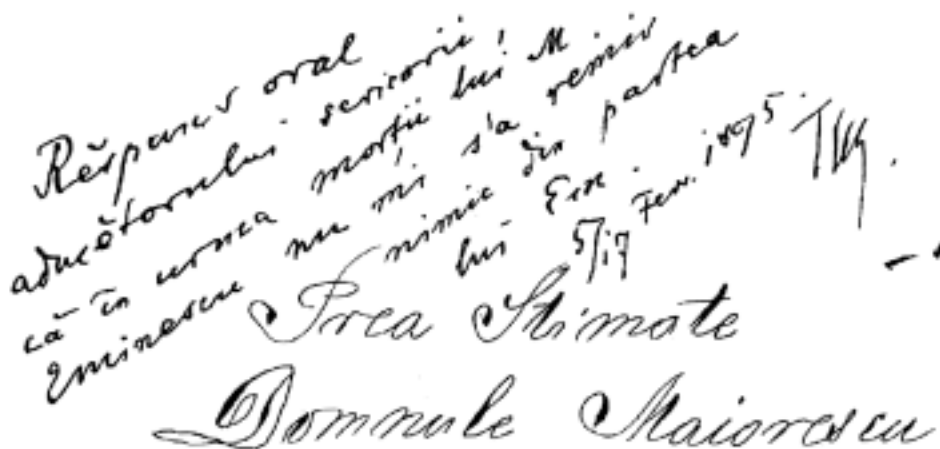 Rĕspuns oral
aducĕtorului scrisorii,
că în urma morții lui M
Eminescu nu mi s'a remis
nimic din partea
lui Em.
5/17 Fevr. 1895. TM.
Prea Stimate
Domnule Maiorescu